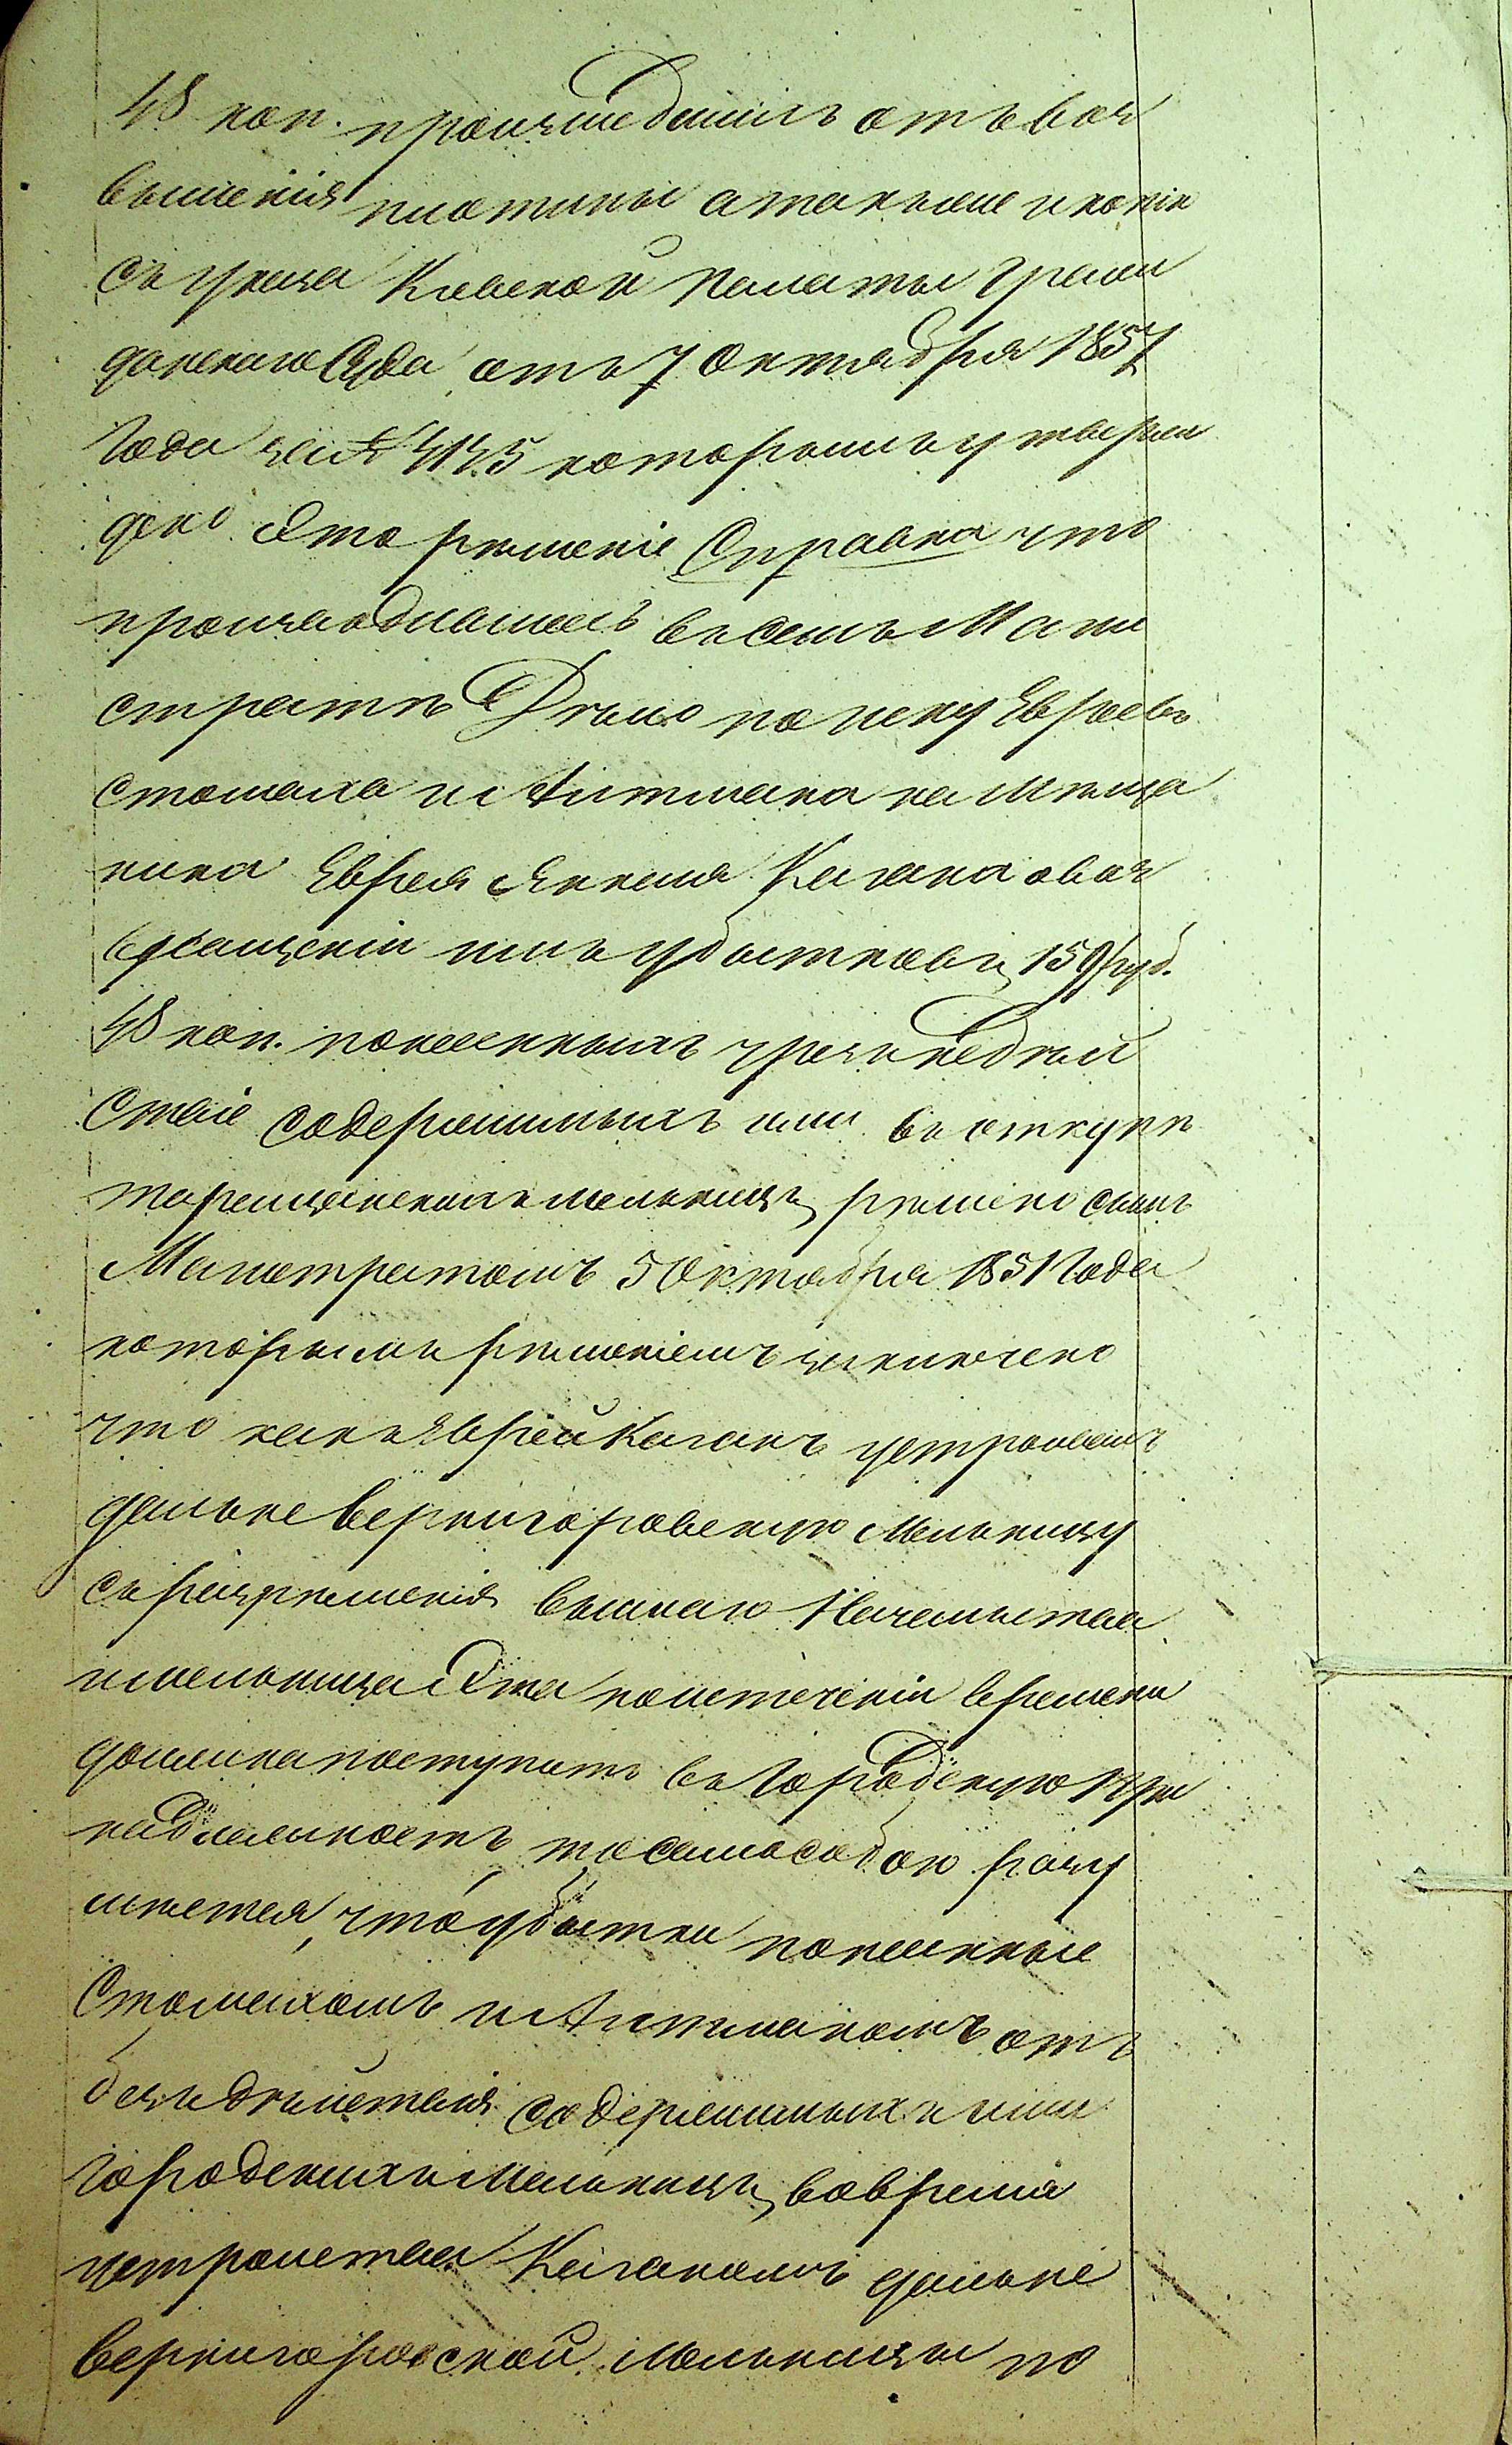 48 коп. происшедшихъ отъ воз
вышенія плотины а также и копія
съ указа Кіевской Палаты Граж
данскаго Суда отъ 7 Октября 1857
Года за № 4145 которымъ утверж
дено это рѣшеніе Справка что
производилось въ семъ Маги
стратѣ Дѣло по иску Евреевъ
Стомаха и Литмана на Мѣща
нина Еврея Янкеля Кагана о воз
вращеніи имъ убытковъ 159 руб.
48 коп. понесенныхъ чрезъ недѣй
ствіе содержимыхъ ими въ откупѣ
таращанскихъ мельницъ, рѣшено симъ
Магистратомъ 5 Октября 1851 Года
которымъ рѣшеніемъ заключено
что какъ Еврей Каганъ устроилъ
дальне вернигоровскую Мельницу
съ разрѣшенія вышняго Начальства
и мельница эта по истеченіи времени
должна поступить въ Городскую при
надлежность то само собою разу
мѣется, что убытки понесенные
Стомахомъ и Литманомъ отъ
бездѣйствія содержимыхъ ими
Городскихъ Мельницъ, во время
устройства Каганомъ дальне
вернигоровской Мельницы по